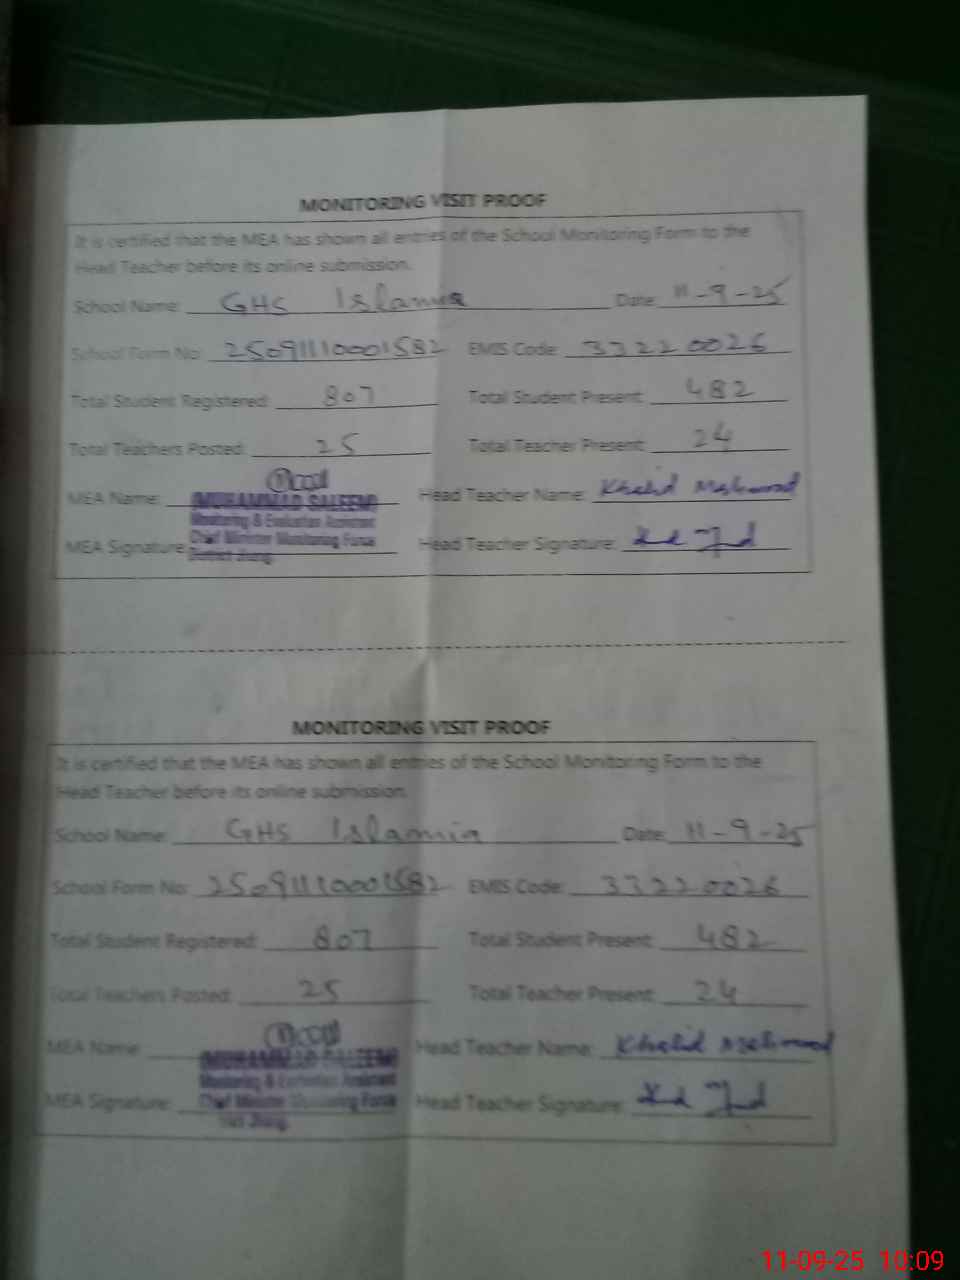 MONITORING VISIT PROOF
It is certified that the MEA has shown all entries of the School Monitoring Form to the
Head Teacher before its online submission.
School Name: GHS Islamia Date: 11-9-25
School Form No: 25091110001582 EMIS Code: 33220026
Total Student Registered: 807 Total Student Present: 482
Total Teachers Posted: 25 Total Teacher Present: 24
MEA Name: MUHAMMAD SALEEM Head Teacher Name: Khalid Mahmood
Monitoring & Evaluation Assistant
Chief Minister Monitoring Force
MEA Signature: Head Teacher Signature:
District Jhang.
MONITORING VISIT PROOF
It is certified that the MEA has shown all entries of the School Monitoring Form to the
Head Teacher before its online submission.
School Name: GHS Islamia Date: 11-9-25
School Form No: 25091110001582 EMIS Code: 33220026
Total Student Registered: 807 Total Student Present: 482
Total Teachers Posted: 25 Total Teacher Present: 24
MEA Name: Head Teacher Name: Khalid Mahmood
MUHAMMAD SALEEM
Monitoring & Evaluation Assistant
MEA Signature: Chief Minister Monitoring Force Head Teacher Signature:
Jhang.
11-09-25 10:09